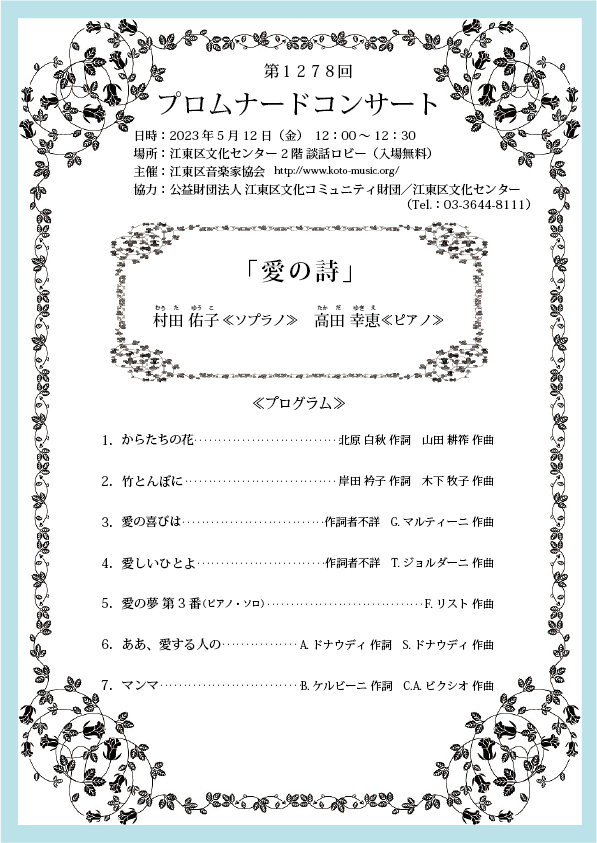 第1278回
プロムナードコンサート
日時：2023年5月12日（金） 12：00～12：30
場所：江東区文化センター2階 談話ロビー（入場無料）
主催：江東区音楽家協会 http://www.koto-music.org/
協力：公益財団法人 江東区文化コミュニティ財団／江東区文化センター
（Tel.：03-3644-8111）
「愛の詩」
むら た ゆう こ たか だ ゆき え
村田 佑子≪ソプラノ≫ 高田 幸恵≪ピアノ≫
≪プログラム≫
1. からたちの花‥‥‥‥‥‥‥‥‥‥‥‥‥‥北原 白秋 作詞 山田 耕筰 作曲
2. 竹とんぼに‥‥‥‥‥‥‥‥‥‥‥‥‥‥‥岸田 衿子 作詞 木下 牧子 作曲
3. 愛の喜びは‥‥‥‥‥‥‥‥‥‥‥‥‥‥作詞者不詳 G. マルティーニ 作曲
4. 愛しいひとよ‥‥‥‥‥‥‥‥‥‥‥‥‥作詞者不詳 T. ジョルダーニ 作曲
5. 愛の夢 第3番（ピアノ・ソロ）‥‥‥‥‥‥‥‥‥‥‥‥‥‥‥‥F. リスト 作曲
6. ああ、愛する人の‥‥‥‥‥‥‥‥A. ドナウディ 作詞 S. ドナウディ 作曲
7. マンマ‥‥‥‥‥‥‥‥‥‥‥‥‥‥B. ケルビーニ 作詞 C.A. ビクシオ 作曲